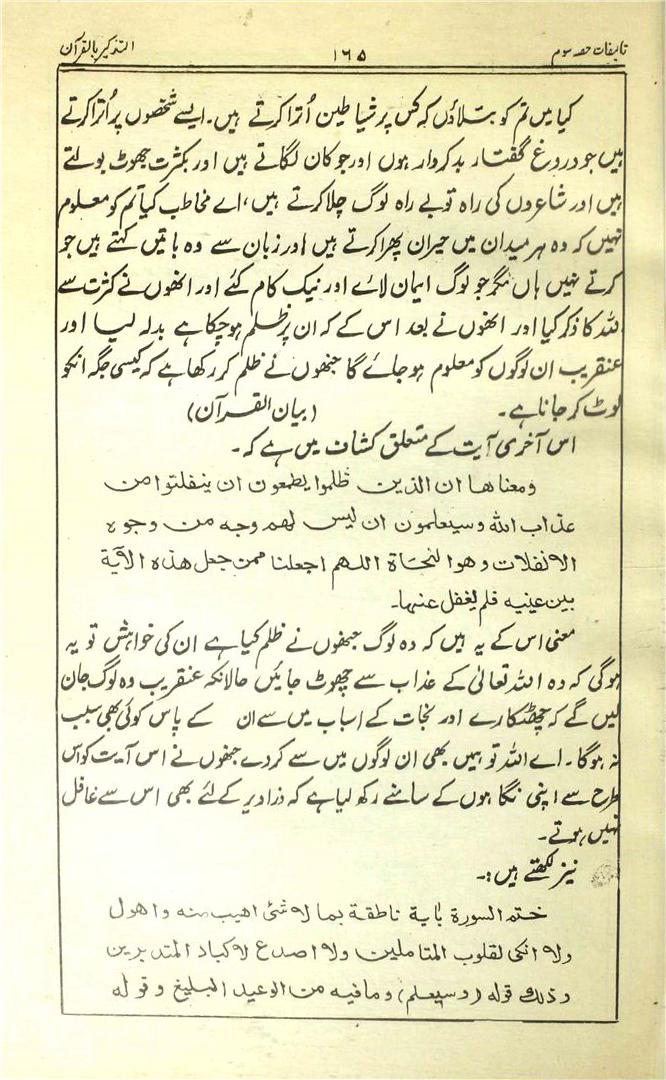 تالیفات حصہ سوم ۱۶۵ التذکیر بالقرآن
کیا میں تم کو بتلاؤں کہ کس پر شیاطین اُترا کرتے ہیں۔ ایسے شخصوں پر اُترا کرتے
ہیں جو دروغ گفتار بدکردار ہوں اور جو کان لگاتے ہیں اور بکثرت جھوٹ بولتے
ہیں اور شاعروں کی راہ تو بے راہ لوگ چلا کرتے ہیں، اے مخاطب کیا تم کو معلوم
نہیں کہ وہ ہر میدان میں حیران پھرا کرتے ہیں اور زبان سے وہ باتیں کہتے ہیں جو
کرتے نہیں ہاں مگر جو لوگ ایمان لائے اور نیک کام کئے اور انھوں نے کثرت سے
للہ کا ذکر کیا اور انھوں نے بعد اس کے کہ ان پر ظلم ہو چکا ہے بدلہ لیا اور
عنقریب ان لوگوں کو معلوم ہو جائے گا جنھوں نے ظلم کر رکھا ہے کہ کیسی جگہ انکو
لوٹ کر جانا ہے۔ (بیان القرآن)
اس آخری آیت کے متعلق کشاف میں ہے کہ۔
ومعناها ان الذین ظلموا یطمعون ان ینفلتوا من
عذاب الله وسیعلمون ان لیس لهم وجه من وجوه
الانفلات وهو النجاة اللهم اجعلنا ممن جعل هذه الآیة
بین عینیه فلم یغفل عنها۔
معنی اس کے یہ ہیں کہ وہ لوگ جنھوں نے ظلم کیا ہے ان کی خواہش تو یہ
ہوگی کہ وہ اللہ تعالیٰ کے عذاب سے چھوٹ جائیں حالانکہ عنقریب وہ لوگ جان
لیں گے کہ چھٹکارے اور نجات کے اسباب میں سے ان کے پاس کوئی بھی سبب
نہ ہوگا۔ اے اللہ تو ہمیں بھی ان لوگوں میں سے کردے جنھوں نے اس آیت کو اس
طرح سے اپنی نگاہوں کے سامنے رکھ لیا ہے کہ ذرا دیر کے لئے بھی اس سے غافل
نہیں ہوتے۔
نیز لکھتے ہیں:۔
ختم السورة بآیة ناطقة بما لا شئ اهیب منه واهول
ولا انکی لقلوب المتاملین ولا اصدع لاکباد المتدبرین
وذلک قوله (وسیعلم) وما فیه من الوعید البلیغ وقوله